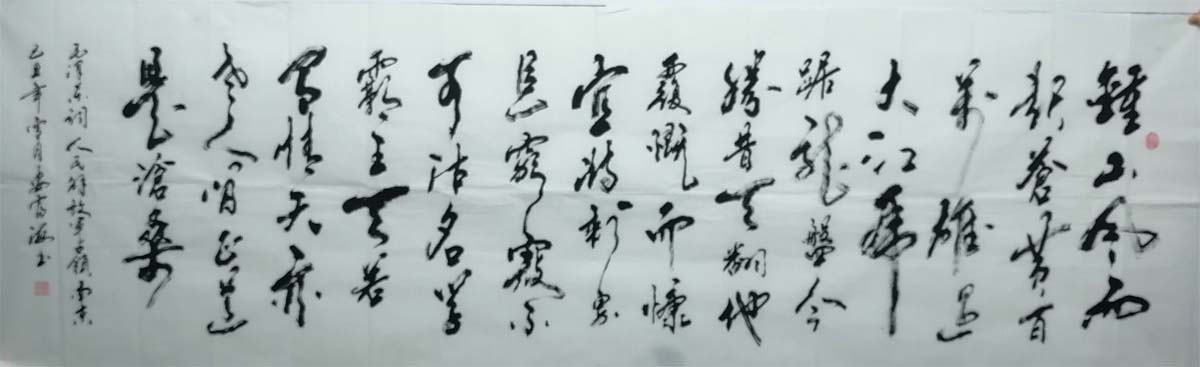 鍾山风雨
起蒼黄百
萬雄过
大江虎
踞龍盤今
勝昔天翻地
覆慨而慷
宜将剩勇
追窮寇不
可沽名学
霸王天若
有情天亦
老人间正道
是滄桑
毛泽东词人民解放军占领南京
己丑年雪月海书